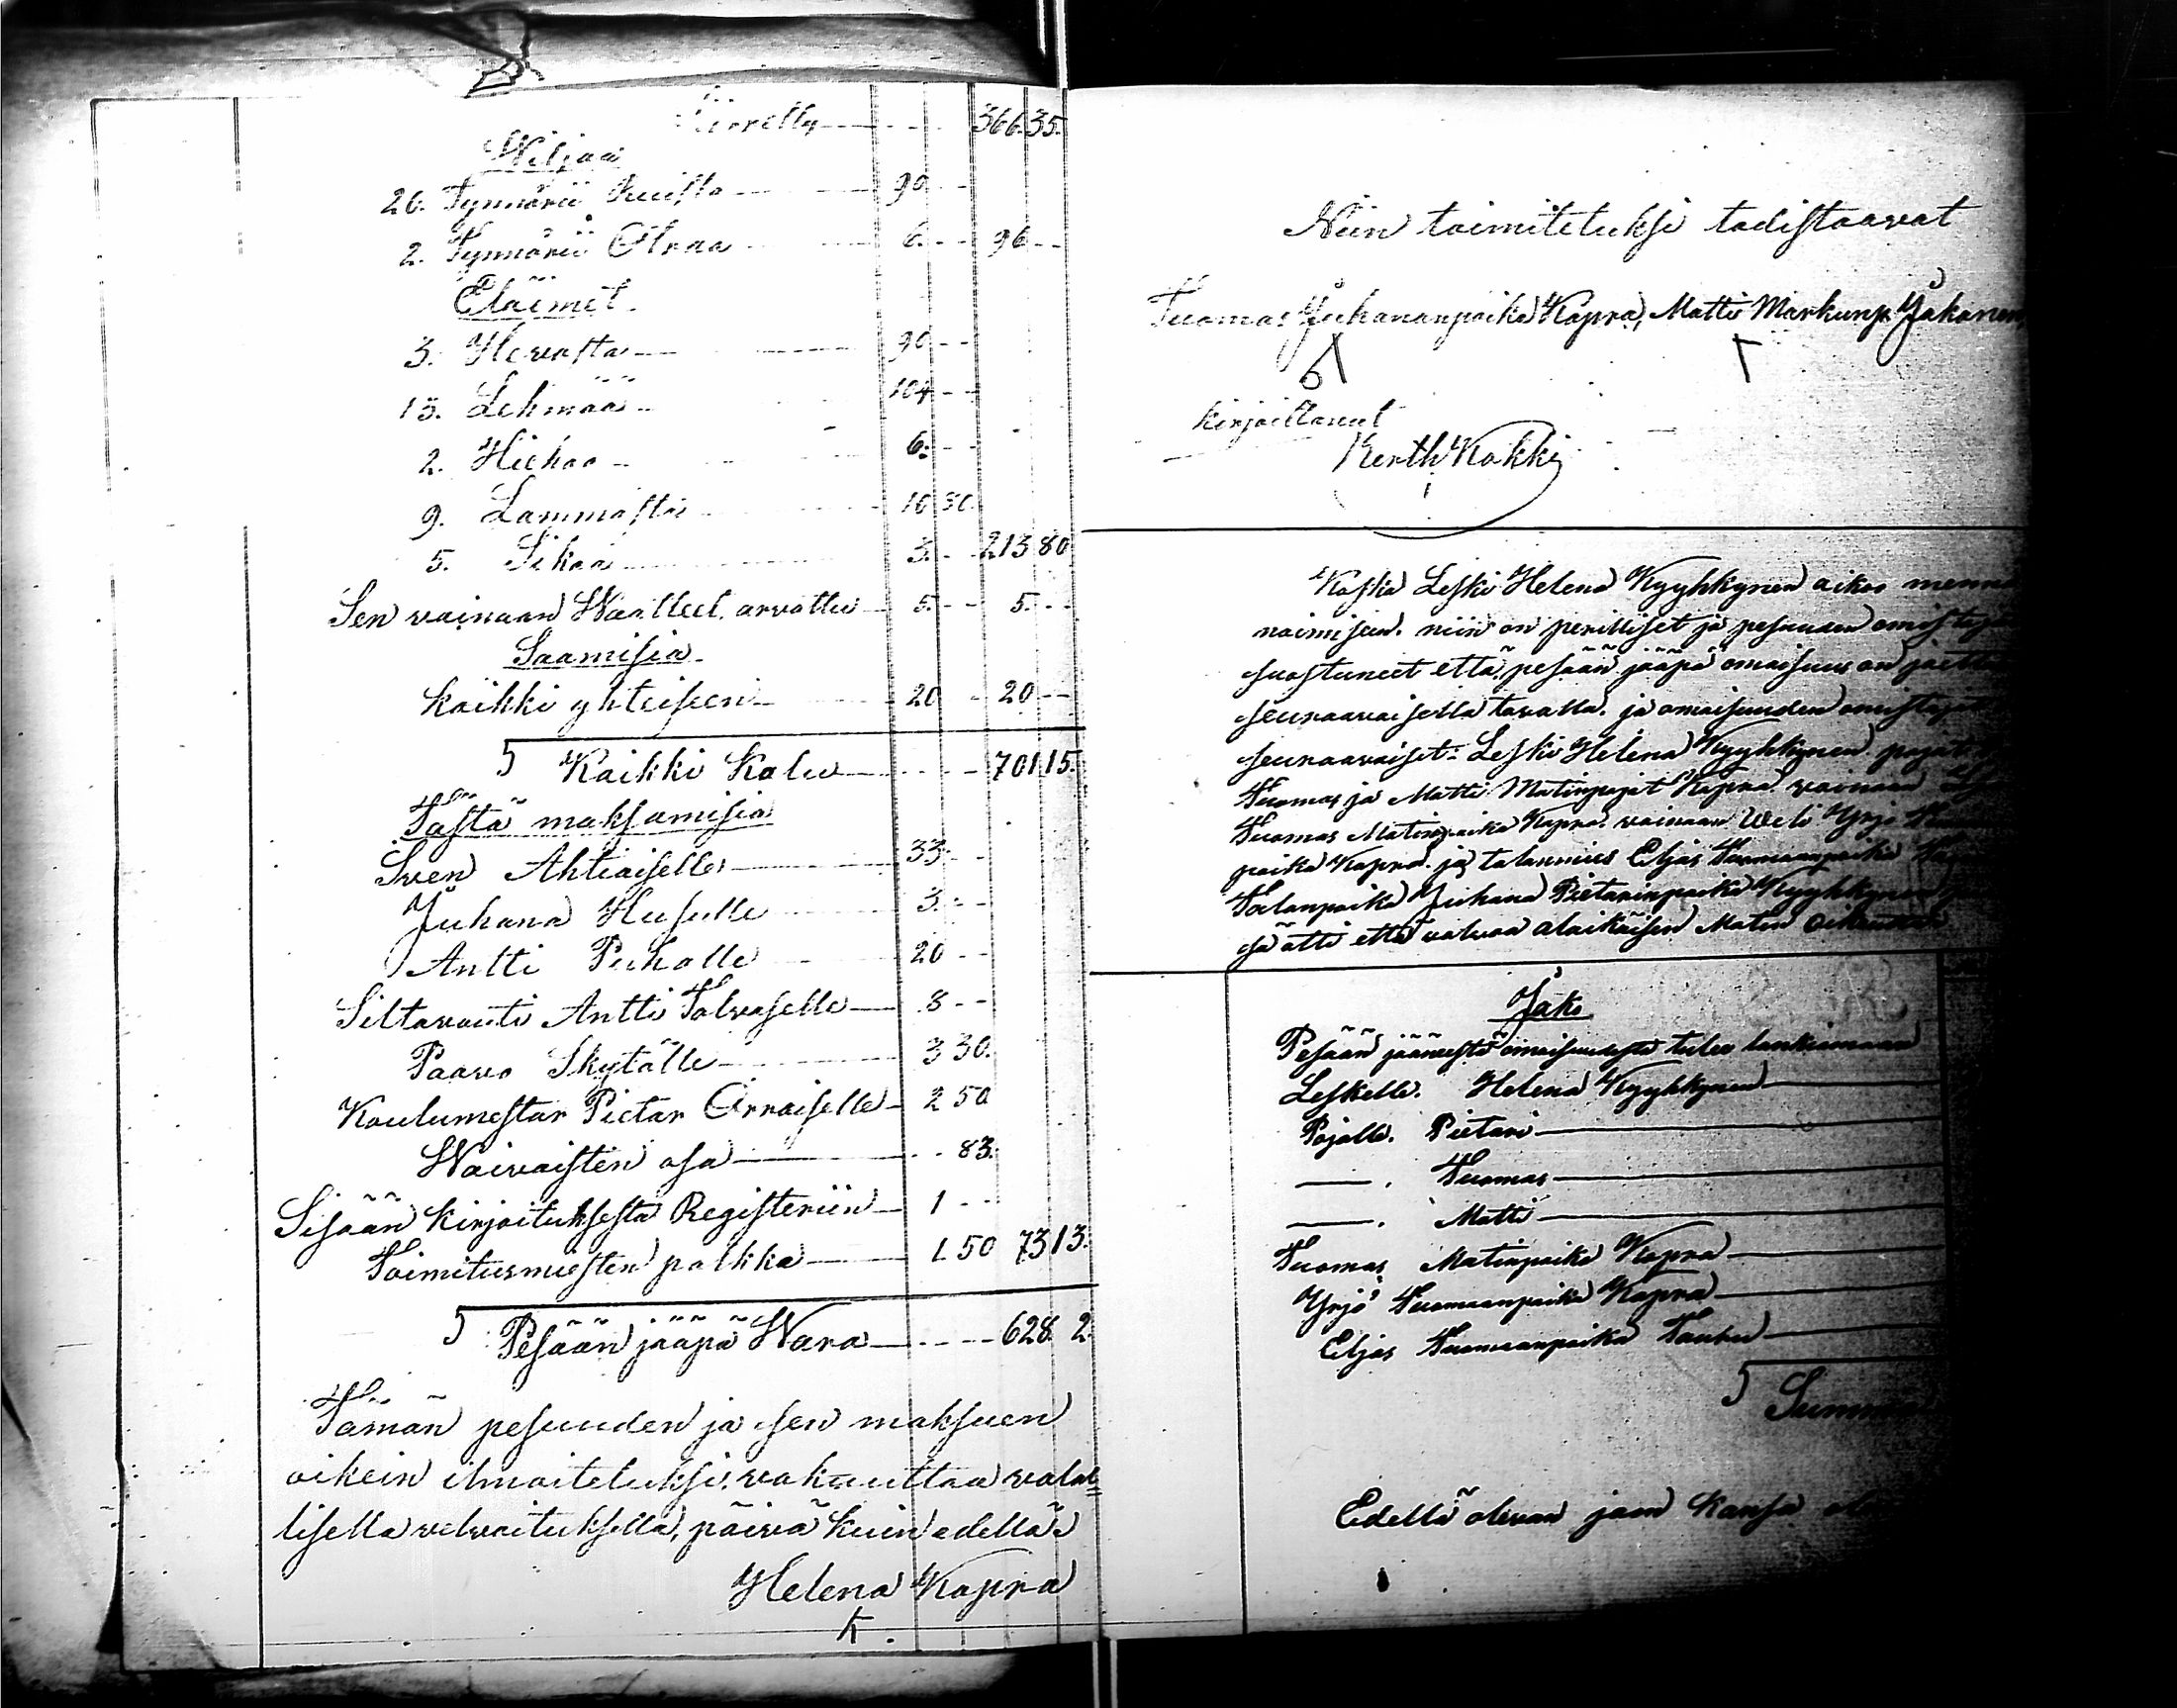 Siirretty - - - 366. 35.
Wiljaa
26. Tynnörii Ruista - 90 - -
2. Tynnörii Ohraa - 6. - - 96 - -
Eläimet.
3. Hewosta - 90 - -
15. Lehmää - 104 - -
2. Hiehoa - 6. - -
9. Lammasta - 10 80.
5. Sikaa - 3. - - 213 80
Sen vainaan Waatteet arvattu - 5. - - 5. - -
Saamisia
kaikki yhteiseen - 20 - - 20 - -
S Kaikki Kalu - - - 701 15.
Tästä maksamisia
Sven Ahtiaiselle - 33 - -
Juhana Husulle - 3. - -
Antti Pukalle - 20 - -
Siltavouti Antti Tolvaselle - 8 - -
Paavo Skytälle - 3 30.
Koulumestar Pietar Orraiselle - 2 50
Waivaisten osa - - - 83.
Sisään kirjoituksesta Registeriin - 1 - -
Toimitusmiesten palkka - 1. 50 73 13.
S Pesään jääpä Wara - - - 628. 2.
Tämän pesuuden ja sen maksuen
oikein ilmoitetuksi, vakuuttaa valal=
lisella velvoituksella, päivä kuin edellä.
Helena Kapra
Niin toimitetuksi todistaavat
Tuomas Juhananpoika Kapra, Matti Markunp. Jakonen,
kirjoittanut
Kerth Kokki
Koska Leski Helena Kyyhkynen aikoo
naimiseen. niin on perilliset ja pesuuden
suostuneet että pesään jääpä omaisuus on
seuraavaisella tavalla. ja omaisuuden
seuraavaiset: Leski Helena Kyyhkynen pojat
Tuomas ja Matti Matinpojat Kapra. vainaan
Tuomas Matinpoika Kapra. vainaan Weli Yrjö
poika Kapra. ja talanmies Eljas Tuomaanpoika
Talanpoika Juhana Pietarinpoika Kyyhkynen
että valvaa alaikäisen Matin
Jako
Pesään jääneestä omaisuudesta tulee lankiamaan
Leskelle. Helena Kyyhkynen
Pojalle. Pietari
— . Tuomas
— . Matti
Tuomas Matinpoika Kapra
Yrjö Tuomaanpoika Kapra
Eljas Tuomaanpoika Tauhu
S Summa
Edellä olevan jaon kansa